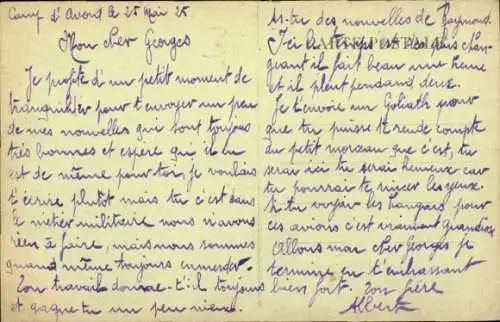 Camp d'Avord le 25 Mai 25
Mon cher Georges
Je profite d'un petit moment de
tranquilité pour t'envoyer un peu
de mes nouvelles qui sont toujours
très bonnes et espère qu'il en
est de même pour toi, je voulais
t'écrire plutôt mais tu c'est dans
le métier militaire nous n'avons
rien à faire, mais nous sommes
quand même toujours emmerder.
Ton travail donne-t'il toujours
et gagne tu un peu mieux.
As-tu des nouvelles de Raymond.
Ici le temps est des plus chan-
geant il fait beau une heure
et il pleut pendand deux.
Je t'envoie un Goliath pour
que tu puisse te rende compte
du petit morceau que c'est, tu
serai ici tu serai heureux car
tu pourrai te rincer les yeux.
Si tu voyais les hangars pour
ces avions c'est vraiment grandiose
Allons mon cher Georges je
termine en t'embrassant
bien fort. Ton frère
Albert